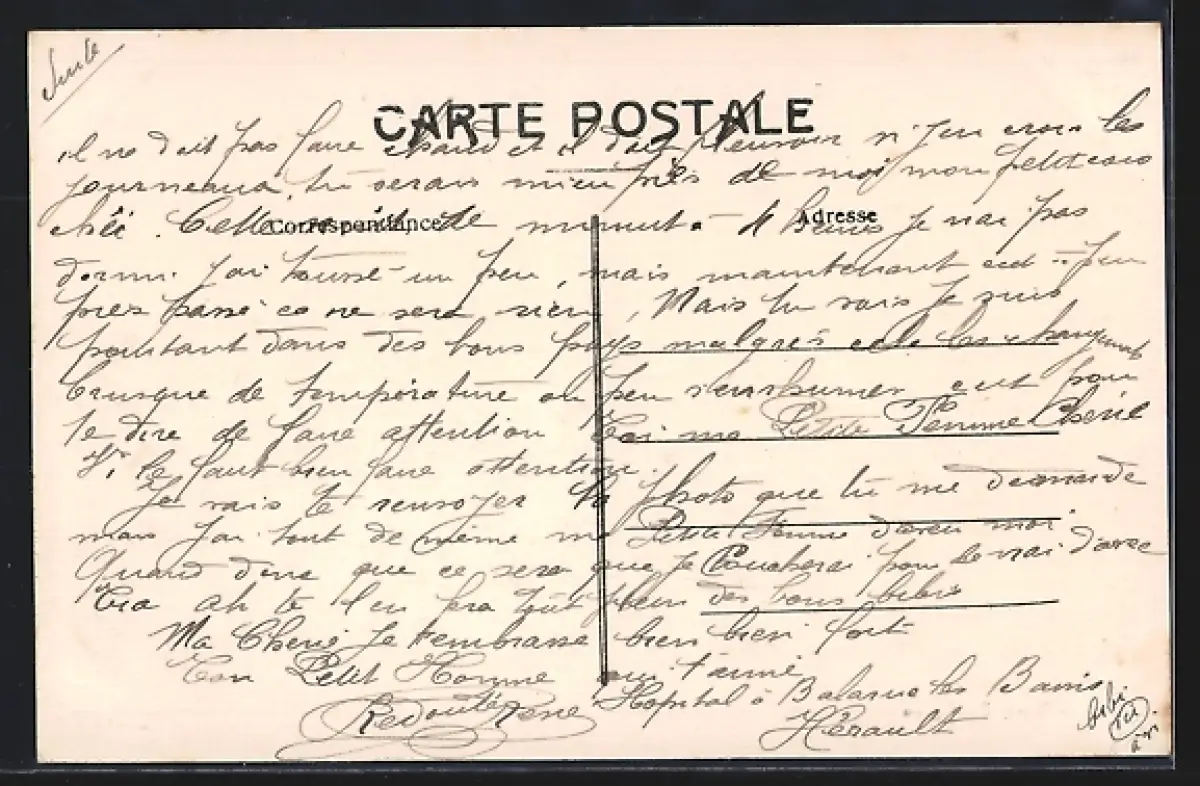 Suite
CARTE POSTALE
il ne doit pas faire chaud et il doit pleuvoir si j'en crois les
journeaux, tu serais mieu près de moi mon petit coco
chéri. Cette Correspondance nuit, de minuit à 4 heures Adresse je n'ai pas
dormi. J'ai toussé un peu, mais maintenant cest à peu
près passé ce ne sera rien, Mais tu vois je suis
pourtant dans des bons pays malgrés cela les changements
brusque de température on peu s'enrhumer cest pour
te dire de faire attention toi ma Petite Femme Cherie
il le faut bien faire attention.
Je vais te renvoyer la photo que tu me demande
mais j'ai tout de même ma Petite Femme d'avec moi
Quand donc que ce sera que je Coucherai pour de vrai d'avec
Toi ah te l'en fera tout plein des bons bibis
Ma Cherie Je t'embrasse bien bien fort
Ton Petit Homme qui t'aime
Redouté René
Hopital à Balaruc les Bains
Hérault
ici